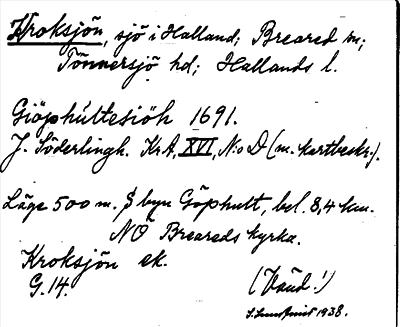 Kroksjön, sjö i Halland; Breared sn;
Tönnersjö hd; Hallands l.
Giöphultesiöh 1691.
J. Söderlingh. KrA, XVI, N:o D (m. kartbeskr.).
Läge 500 m. S byn Göphult, bel. 8,4 km.
NO Breareds kyrka.
Kroksjön ek.
G. 14.
1938.